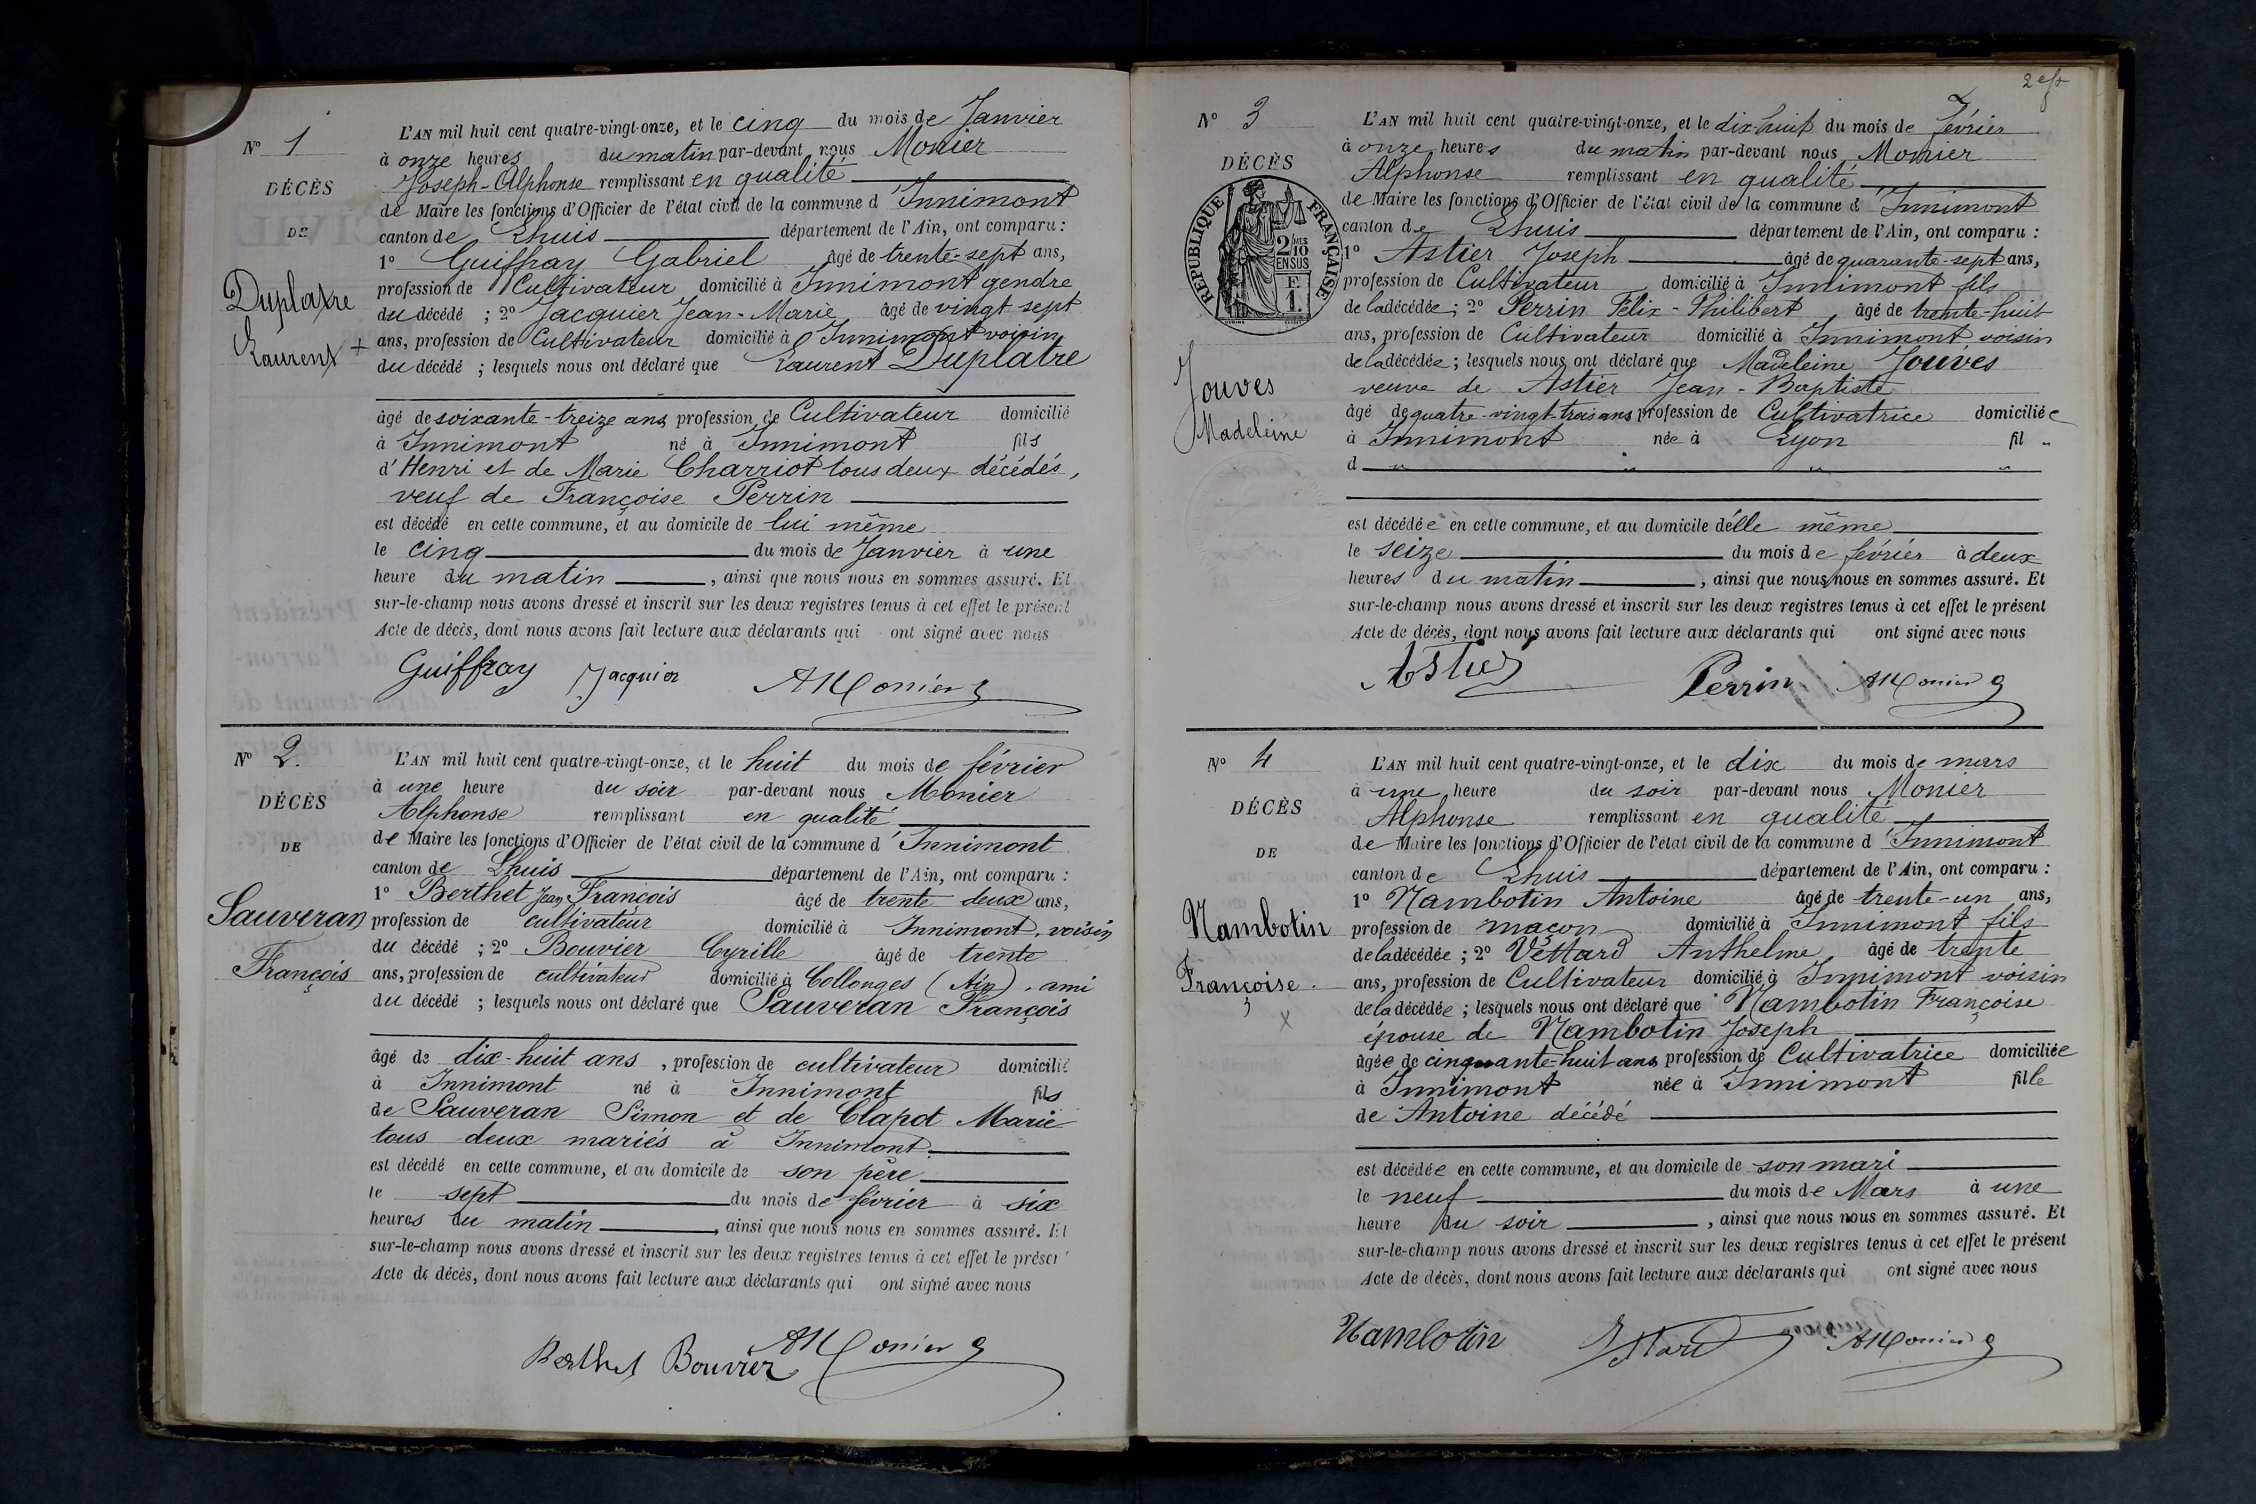 N° 1
DÉCÈS
DE
Duplatre
Laurent +
L'AN mil huit cent quatre-vingt-onze, et le cinq du mois de Janvier
à onze heures du matin par-devant nous Monier
Joseph-Alphonse remplissant en qualité
de Maire les fonctions d'Officier de l'état civil de la commune d'Innimont
canton de Lhuis département de l'Ain, ont comparu :
1° Guiffray Gabriel âgé de trente-sept ans,
profession de Cultivateur domicilié à Innimont gendre
du décédé ; 2° Jacquier Jean-Marie âgé de vingt sept
ans, profession de Cultivateur domicilié à Innimont voisin
du décédé ; lesquels nous ont déclaré que Laurent Duplatre
âgé de soixante-treize ans, profession de Cultivateur domicilié
à Innimont né à Innimont fils
d'Henri et de Marie Charriot tous deux décédés,
veuf de Françoise Perrin
est décédé en cette commune, et au domicile de lui même
le cinq du mois de Janvier à une
heure du matin, ainsi que nous nous en sommes assuré. Et
sur-le-champ nous avons dressé et inscrit sur les deux registres tenus à cet effet le présent
Acte de décès, dont nous avons fait lecture aux déclarants qui ont signé avec nous
Guiffray Jacquier AMonier
N° 2.
DÉCÈS
DE
Sauveran
François
L'AN mil huit cent quatre-vingt-onze, et le huit du mois de février
à une heure du soir par-devant nous Monier
Alphonse remplissant en qualité
de Maire les fonctions d'Officier de l'état civil de la commune d'Innimont
canton de Lhuis département de l'Ain, ont comparu :
1° Berthet Jean François âgé de trente deux ans,
profession de cultivateur domicilié à Innimont, voisin
du décédé ; 2° Bouvier Cyrille âgé de trente
ans, profession de cultivateur domicilié à Collonges (Ain), ami
du décédé ; lesquels nous ont déclaré que Sauveran François
âgé de dix-huit ans, profession de cultivateur domicilié
à Innimont né à Innimont fils
de Sauveran Simon et de Clapot Marie
tous deux mariés à Innimont.
est décédé en cette commune, et au domicile de son père
le sept du mois de février à six
heures du matin, ainsi que nous nous en sommes assuré. Et
sur-le-champ nous avons dressé et inscrit sur les deux registres tenus à cet effet le présen
Acte de décès, dont nous avons fait lecture aux déclarants qui ont signé avec nous
Berthet Bouvier AMonier
N° 3
DÉCÈS
RÉPUBLIQUE FRANÇAISE
2/10 EN SUS
F. 1.
Jouves
Madeleine
L'AN mil huit cent quatre-vingt-onze, et le dix-huit du mois de février
à onze heures du matin par-devant nous Monier
Alphonse remplissant en qualité
de Maire les fonctions d'Officier de l'état civil de la commune d'Innimont
canton de Lhuis département de l'Ain, ont comparu :
1° Astier Joseph âgé de quarante-sept ans,
profession de Cultivateur domicilié à Innimont fils
de la décédée ; 2° Perrin Félix-Philibert âgé de trente-huit
ans, profession de Cultivateur domicilié à Innimont, voisin
de la décédée ; lesquels nous ont déclaré que Madeleine Jouves
veuve de Astier Jean-Baptiste
âgé de quatre-vingt-trois ans profession de Cultivatrice domiciliée
à Innimont née à Lyon fil "
d " " " "
est décédée en cette commune, et au domicile d'elle même
le seize du mois de février à deux
heures du matin, ainsi que nous nous en sommes assuré. Et
sur-le-champ nous avons dressé et inscrit sur les deux registres tenus à cet effet le présent
Acte de décès, dont nous avons fait lecture aux déclarants qui ont signé avec nous
Astier Perrin AMonier
N° 4
DÉCÈS
DE
Nambotin
Françoise.
L'AN mil huit cent quatre-vingt-onze, et le dix du mois de mars
à une heure du soir par-devant nous Monier
Alphonse remplissant en qualité
de Maire les fonctions d'Officier de l'état civil de la commune d'Innimont
canton de Lhuis département de l'Ain, ont comparu :
1° Nambotin Antoine âgé de trente-un ans,
profession de maçon domicilié à Innimont fils
de la décédée ; 2° Vettard Anthelme âgé de trente
ans, profession de Cultivateur domicilié à Innimont voisin
de la décédée ; lesquels nous ont déclaré que Nambotin Françoise
épouse de Nambotin Joseph
âgée de cinquante-huit ans, profession de Cultivatrice domiciliée
à Innimont née à Innimont fille
de Antoine décédé
est décédée en cette commune, et au domicile de son mari
le neuf du mois de Mars à une
heure du soir, ainsi que nous nous en sommes assuré. Et
sur-le-champ nous avons dressé et inscrit sur les deux registres tenus à cet effet le présent
Acte de décès, dont nous avons fait lecture aux déclarants qui ont signé avec nous
Nambotin Vettard AMonier